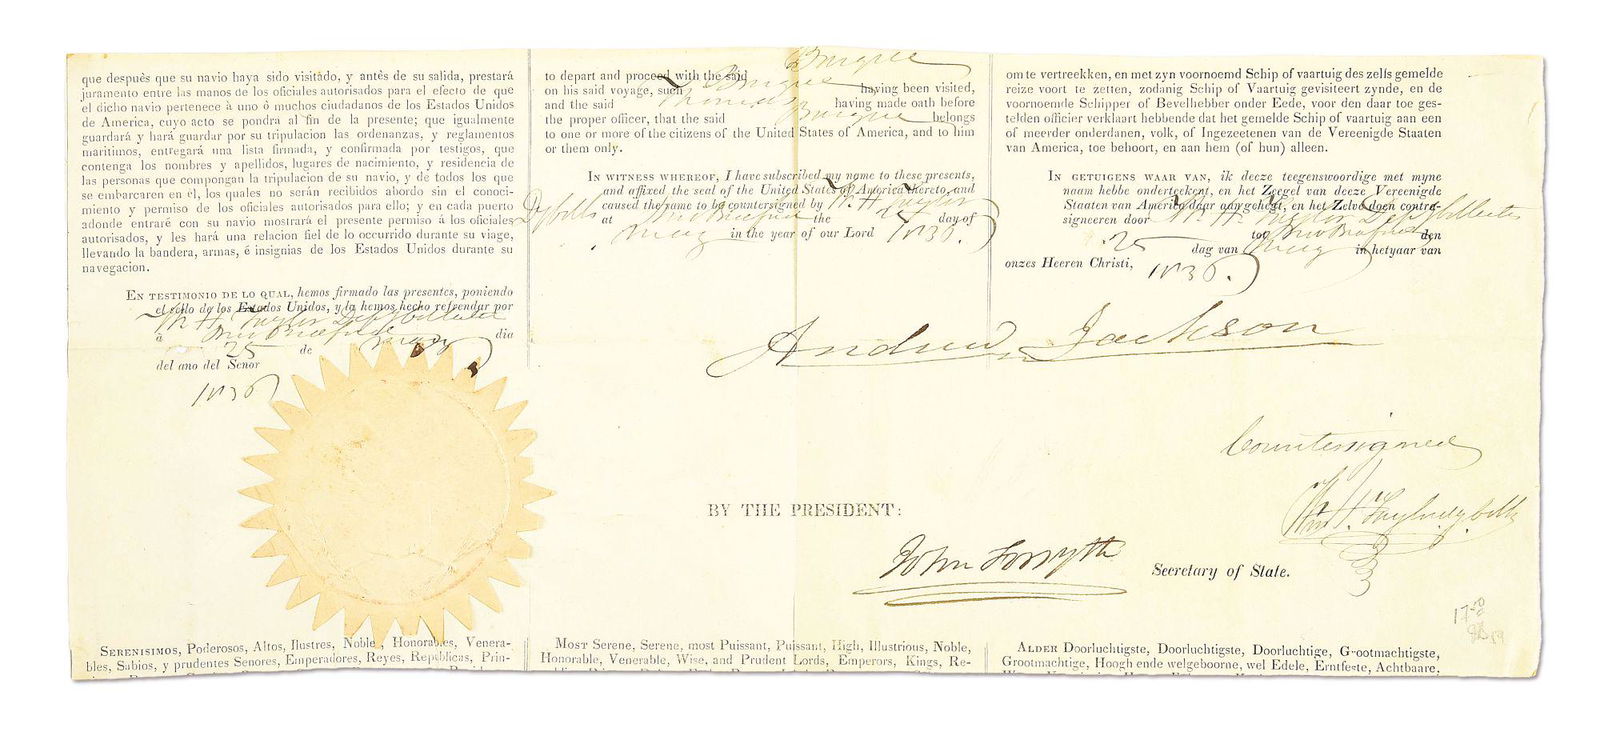 que despuès que su navio haya sido visitado, y antès de su salida, prestará
juramento entre las manos de los oficiales autorisados para el efecto de que
el dicho navio pertenece à uno ó muchos ciudadanos de los Estados Unidos
de America, cuyo acto se pondra al fin de la presente; que igualmente
guardará y hará guardar por su tripulacion las ordenanzas, y reglamentos
maritimos, entregará una lista firmada, y confirmada por testigos, que
contenga los nombres y apellidos, lugares de nacimiento, y residencia de
las personas que compongan la tripulacion de su navio, y de todos los que
se embarcaren en él, los quales no serán recibidos abordo sin el conoci-
miento y permiso de los oficiales autorisados para ello; y en cada puerto
adonde entraré con su navio mostrará el presente permiso á los oficiales
autorisados, y les hará una relacion fiel de lo ocurrido durante su viage,
llevando la bandera, armas, é insignias de los Estados Unidos durante su
navegacion.
En testimonio de lo qual, hemos firmado las presentes, poniendo
el sello de los Estados Unidos, y la hemos hecho refrendar por
Wm H Taylor
a dia
25 de
del ano del Señor
1836
to depart and proceed with the said Burgess
on his said voyage, such having been visited,
and the said having made oath before
the proper officer, that the said belongs
to one or more of the citizens of the United States of America, and to him
or them only.
In witness whereof, I have subscribed my name to these presents,
and affixed the seal of the United States of America thereto, and
caused the same to be countersigned by W. H Taylor
at the 25 day of
in the year of our Lord 1836.
om te vertreekken, en met zyn voornoemd Schip of vaartuig des zelfs gemelde
reize voort te zetten, zodanig Schip of Vaartuig gevisiteert zynde, en de
voornoemde Schipper of Bevelhebber onder Eede, voor den daar toe ges-
telden officier verklaart hebbende dat het gemelde Schip of vaartuig aan een
of meerder onderdanen, volk, of Ingezeetenen van de Vereenigde Staaten
van America, toe behoort, en aan hem (of hun) alleen.
In getuigens waar van, ik deeze teegenswoordige met myne
naam hebbe ondertekent, en het Zeegel van deeze Vereenigde
Staaten van America daar aan gehegt, en het Zelve doen contra-
signeeren door W H Taylor
tot den
25 dag van in hetyaar van
onzes Heeren Christi, 1836.
Andrew Jackson
Countersigned
Wm H. Taylor
BY THE PRESIDENT:
John Forsyth Secretary of State.
Serenisimos, Poderosos, Altos, Ilustres, Nobles, Honorables, Venera-
bles, Sabios, y prudentes Senores, Emperadores, Reyes, Republicas, Prin-
Most Serene, Serene, most Puissant, Puissant, High, Illustrious, Noble,
Honorable, Venerable, Wise, and Prudent Lords, Emperors, Kings, Re-
Alder Doorluchtigste, Doorluchtigste, Doorluchtige, Grootmachtigste,
Grootmachtige, Hoogh ende welgeboorne, wel Edele, Erntfeste, Achtbaare,